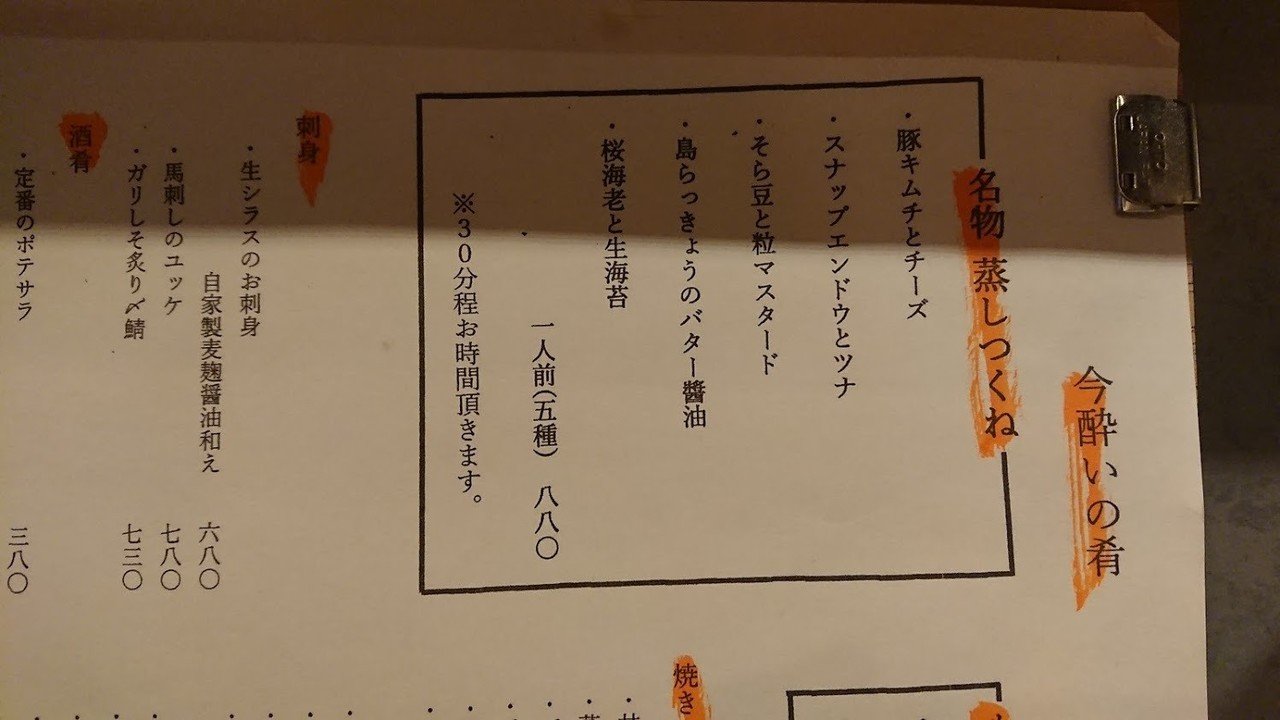 今酔いの肴
名物 蒸しつくね
・豚キムチとチーズ
・スナップエンドウとツナ
・そら豆と粒マスタード
・島らっきょうのバター醬油
・桜海老と生海苔
一人前(五種) 八八〇
※30分程お時間頂きます。
刺身
・生シラスのお刺身
自家製麦麹醤油和え 六八〇
・馬刺しのユッケ 七八〇
・ガリしそ炙り〆鯖 七三〇
酒肴
・定番のポテサラ 三八〇
焼き